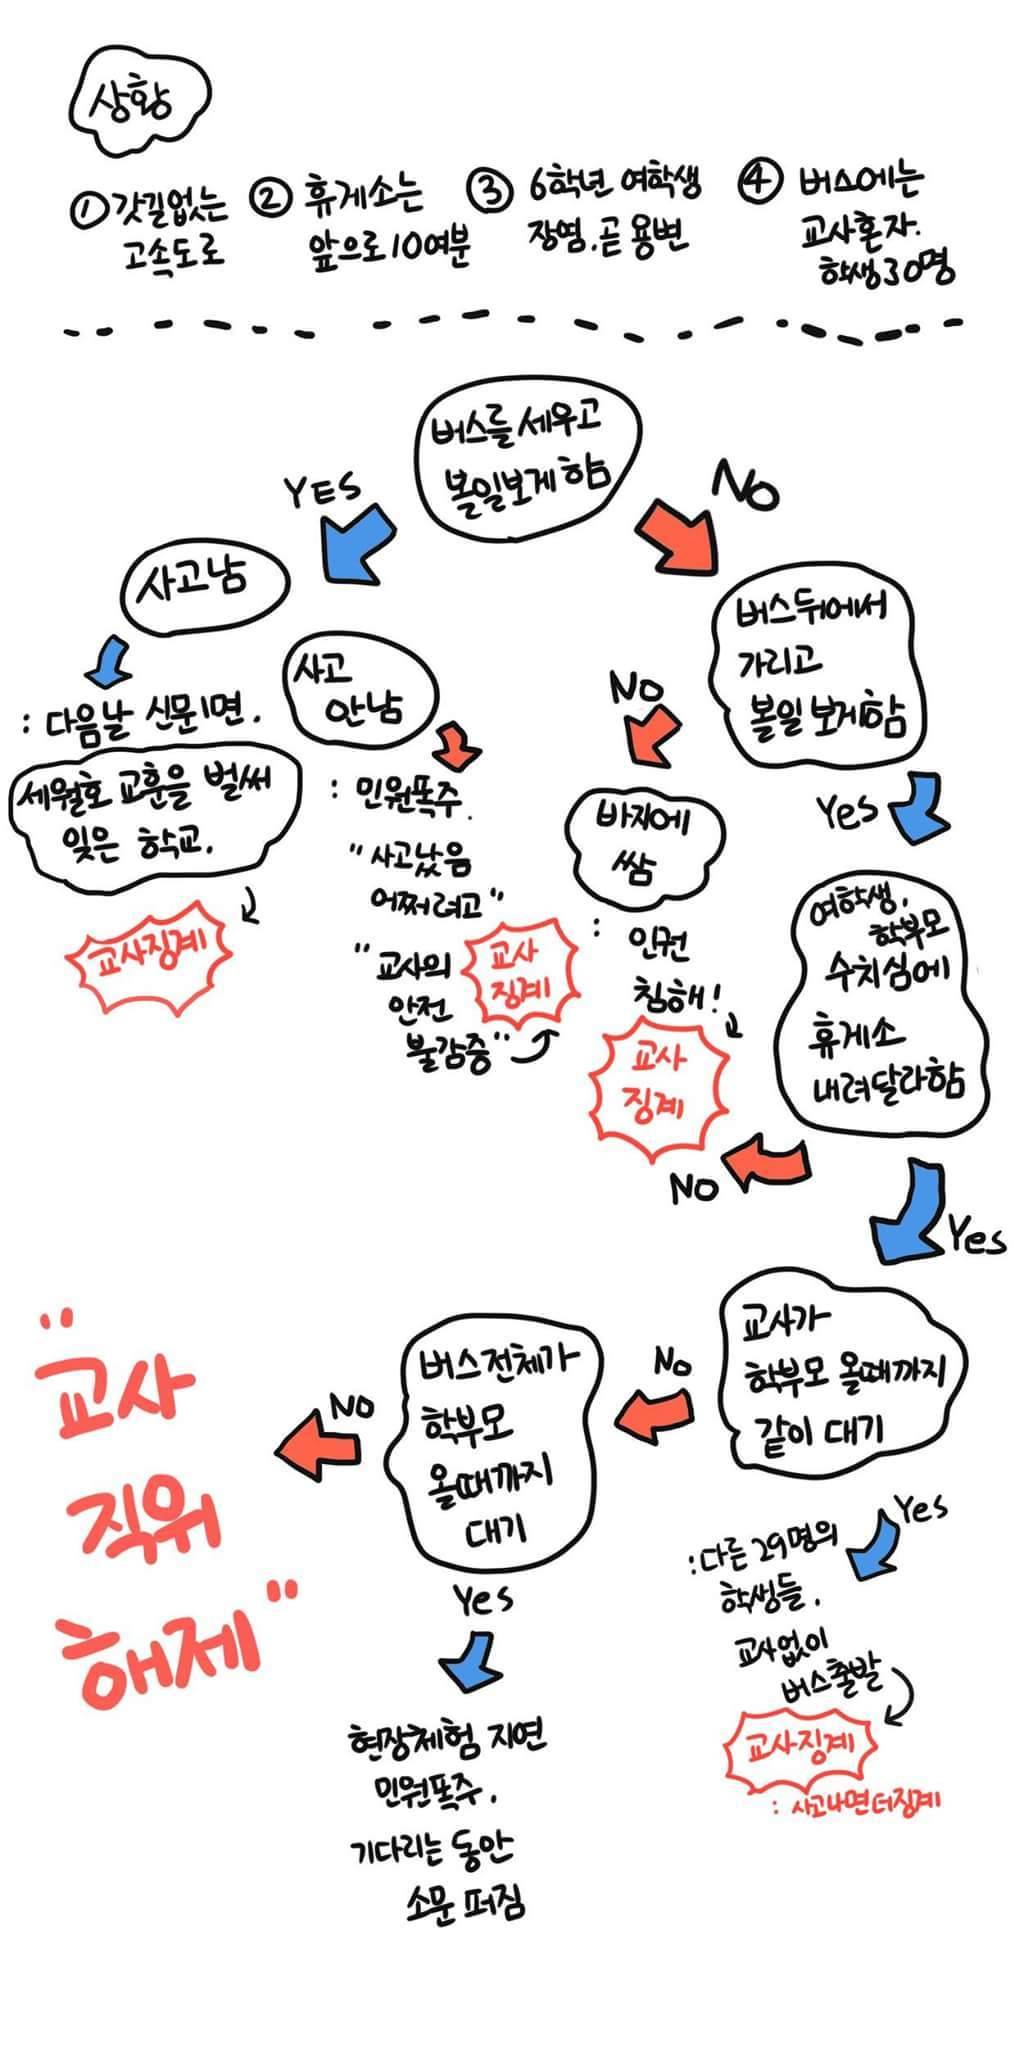 상황
① 갓길없는
고속도로
② 휴게소는
앞으로 10여분
③ 6학년 여학생
장염. 곧 용변
④ 버스에는
교사혼자.
학생30명
버스를 세우고
볼일보게 함
YES
No
사고남
: 다음날 신문1면.
세월호 교훈을 벌써
잊은 학교.
교사징계
사고
안남
: 민원폭주.
"사고났음
어쩌려고"
"교사의
안전
불감증"
교사
징계
버스뒤에서
가리고
볼일 보게함
No
Yes
바지에
쌈
: 인권
침해!
교사
징계
여학생,
학부모
수치심에
휴게소
내려달라함
No
Yes
교사가
학부모 올때까지
같이 대기
No
Yes
: 다른 29명의
학생들.
교사없이
버스출발
교사징계
: 사고나면 더징계
버스전체가
학부모
올때까지
대기
No
Yes
현장체험 지연
민원폭주.
기다리는 동안
소문 퍼짐
"교사
직위
해제"